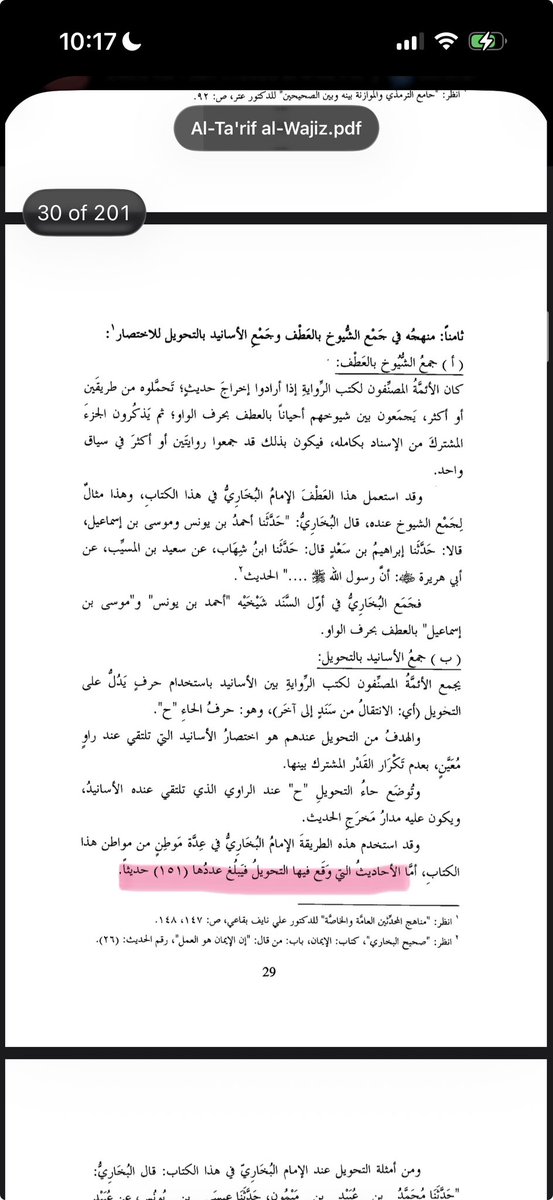 10:17
انظر: "جامع الترمذي والموازنة بينه وبين الصحيحين" للدكتور عتر، ص: ٩٢.
Al-Ta'rif al-Wajiz.pdf
30 of 201
ثامناً: منهجُه في جَمْع الشُّيوخ بالعَطْف وجَمْعِ الأسانيد بالتحويل للاختصار١:
(أ) جمعُ الشُّيُوخ بالعَطْف:
كان الأئمَّةُ المصنِّفون لكتب الرِّواية إذا أرادوا إخراجَ حديثٍ؛ تَحمَّلوه من طريقَين
أو أكثر، يَجمَعون بين شيوخهم أحياناً بالعطف بحرف الواو؛ ثم يَذكُرون الجزءَ
المشتركَ من الإسناد بكامله، فيكون بذلك قد جمعوا روايتَين أو أكثرَ في سياق
واحد.
وقد استعمل هذا العَطْفَ الإمامُ البُخَاريُّ في هذا الكتابِ، وهذا مثالٌ
لِجَمْع الشيوخ عنده، قال البُخَاريُّ: "حَدَّثَنا أحمدُ بن يونس وموسى بن إسماعيل،
قالا: حَدَّثَنا إبراهيمُ بن سَعْدٍ قال: حَدَّثَنا ابنُ شِهَاب، عن سعيد بن المسيِّب، عن
أبي هريرة ﷺ: أنَّ رسول الله ﷺ ...." الحديث٢.
فجَمَع البُخَاريُّ في أوّل السَّنَد شَيْخَيْه "أحمد بن يونس" و"موسى بن
إسماعيل" بالعطف بحرف الواو.
(ب) جمعُ الأسانيد بالتحويل:
يجمع الأئمَّةُ المصنِّفون لكتب الرِّوايةِ بين الأسانيد باستخدام حرفٍ يَدُلُّ على
التحويل (أي: الانتقالُ من سَنَدٍ إلى آخَر)، وهو: حرفُ الحاءِ "ح".
والهدفُ من التحويل عندهم هو اختصارُ الأسانيد التي تلتقي عند راوٍ
مُعَيَّنٍ، بعدم تَكْرَار القَدْر المشترك بينها.
وتُوضَع حاءُ التحويلِ "ح" عند الراوي الذي تلتقي عنده الأسانيدُ،
ويكون عليه مدارُ مَخرَجِ الحديث.
وقد استخدم هذه الطريقةَ الإمامُ البُخَاريُّ في عِدَّة مَوطِنٍ من مواطن هذا
الكتابِ، أمَّا الأحاديثُ التي وَقَع فيها التحويلُ فيَبلُغ عددُها (١٥١) حديثاً.
١ انظر: "مناهج المحدِّثين العامَّة والخاصَّة" للدكتور علي نايف بقاعي، ص: ١٤٧، ١٤٨.
٢ انظر: "صحيح البخاري"، كتاب: الإيمان، باب: من قال: "إن الإيمان هو العمل"، رقم الحديث: (٢٦).
29
ومن أمثلة التحويل عند الإمام البُخَاريّ في هذا الكتاب: قال البُخَاريُّ:
"حَدَّثَنا مُحَمَّدُ بن عُبَيْد بن مَيْمُون، حَدَّثَنا عيسى بن يُونُس، عن عُبَيْد